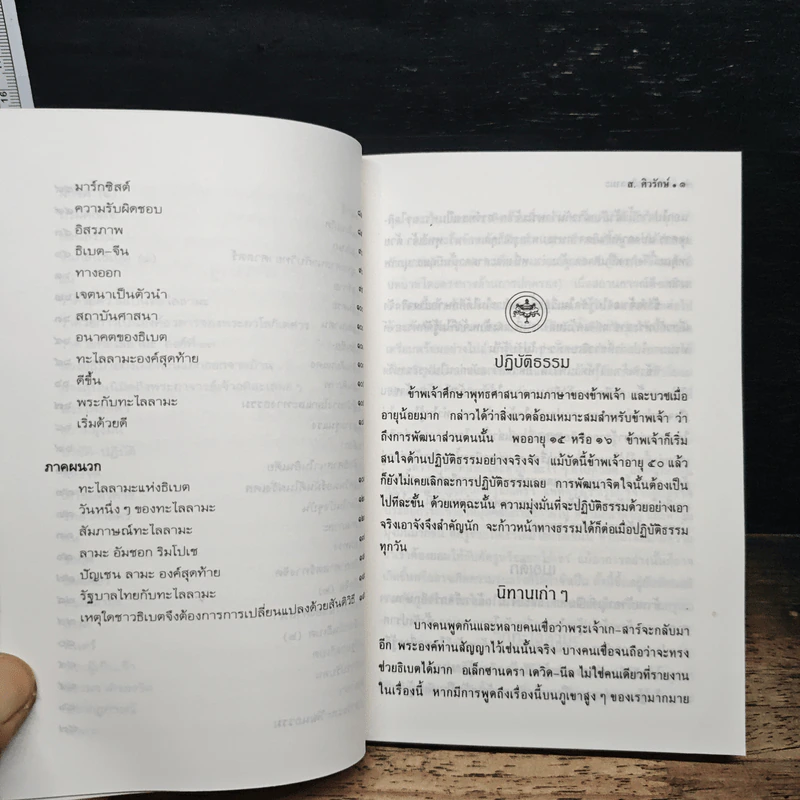 มาร์กซิสต์
ความรับผิดชอบ
อิสรภาพ
ธิเบต-จีน
ทางออก
เจตนาเป็นตัวนำ
สถาบันศาสนา
อนาคตของธิเบต
ทะไลลามะองค์สุดท้าย
ดีขึ้น
พระกับทะไลลามะ
เริ่มด้วยดี
ภาคผนวก
ทะไลลามะแห่งธิเบต
วันหนึ่ง ๆ ของทะไลลามะ
สัมภาษณ์ทะไลลามะ
ลามะ อัมชอก ริมโปเช
ปัญเชน ลามะ องค์สุดท้าย
รัฐบาลไทยกับทะไลลามะ
เหตุใดชาวธิเบตจึงต้องการการเปลี่ยนแปลงด้วยสันติวิธี
ส. ศิวรักษ์ • ๑
ปฏิบัติธรรม
ข้าพเจ้าศึกษาพุทธศาสนาตามภาษาของข้าพเจ้า และบวชเมื่อ
อายุน้อยมาก กล่าวได้ว่าสิ่งแวดล้อมเหมาะสมสำหรับข้าพเจ้า ว่า
ถึงการพัฒนาส่วนตนนั้น พออายุ ๑๕ หรือ ๑๖ ข้าพเจ้าก็เริ่ม
สนใจด้านปฏิบัติธรรมอย่างจริงจัง แม้บัดนี้ข้าพเจ้าอายุ ๕๐ แล้ว
ก็ยังไม่เคยเลิกละการปฏิบัติธรรมเลย การพัฒนาจิตใจนั้นต้องเป็น
ไปทีละขั้น ด้วยเหตุฉะนั้น ความมุ่งมั่นที่จะปฏิบัติธรรมด้วยอย่างเอา
จริงเอาจังจึงสำคัญนัก จะก้าวหน้าทางธรรมได้ก็ต่อเมื่อปฏิบัติธรรม
ทุกวัน
นิทานเก่า ๆ
บางคนพูดกันและหลายคนเชื่อว่าพระเจ้าเก-สาร์จะกลับมา
อีก พระองค์ท่านสัญญาไว้เช่นนั้นจริง บางคนเชื่อจนถือว่าจะทรง
ช่วยธิเบตได้มาก อเล็กซานดรา เดวิด-นีล ไม่ใช่คนเดียวที่รายงาน
ในเรื่องนี้ หากมีการพูดถึงเรื่องนี้บนภูเขาสูง ๆ ของเรามากมาย